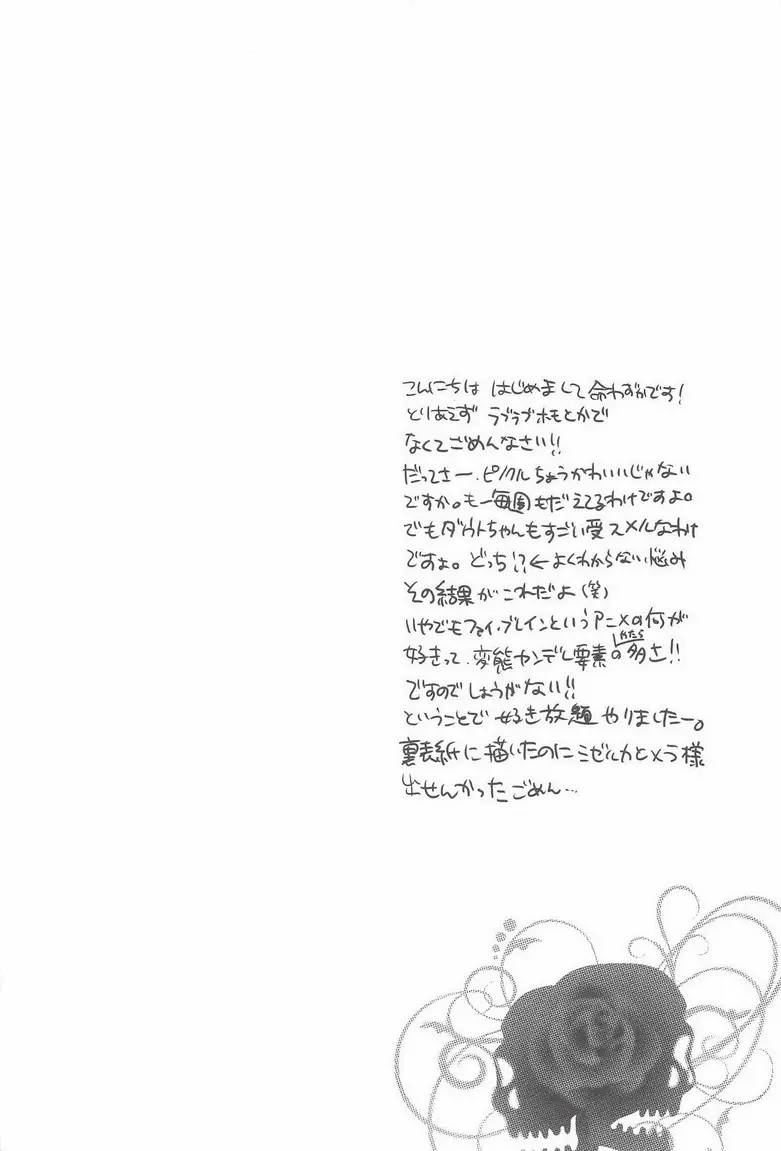 こんにちは はじめまして 命わずかです!
とりあえず ラブラブホモとかで
なくてごめんなさい!!
だってさー、ピノクルちょうかわいいじゃない
ですか。もー毎週もだえてるわけですよ。
でもダウトちゃんもすごい受スメルなわけ
ですよ。どっち!?←よくわからない悩み
その結果がこれだよ(笑)
いやでもファイ・ブレインというアニメの何が
好きって、変態ヤンデレ要素のやたら多さ!!
ですのでしょうがない!!
ということで好き放題やりましたー。
裏表紙に描いたのにミゼルカとメラ様
出せんかったごめん…